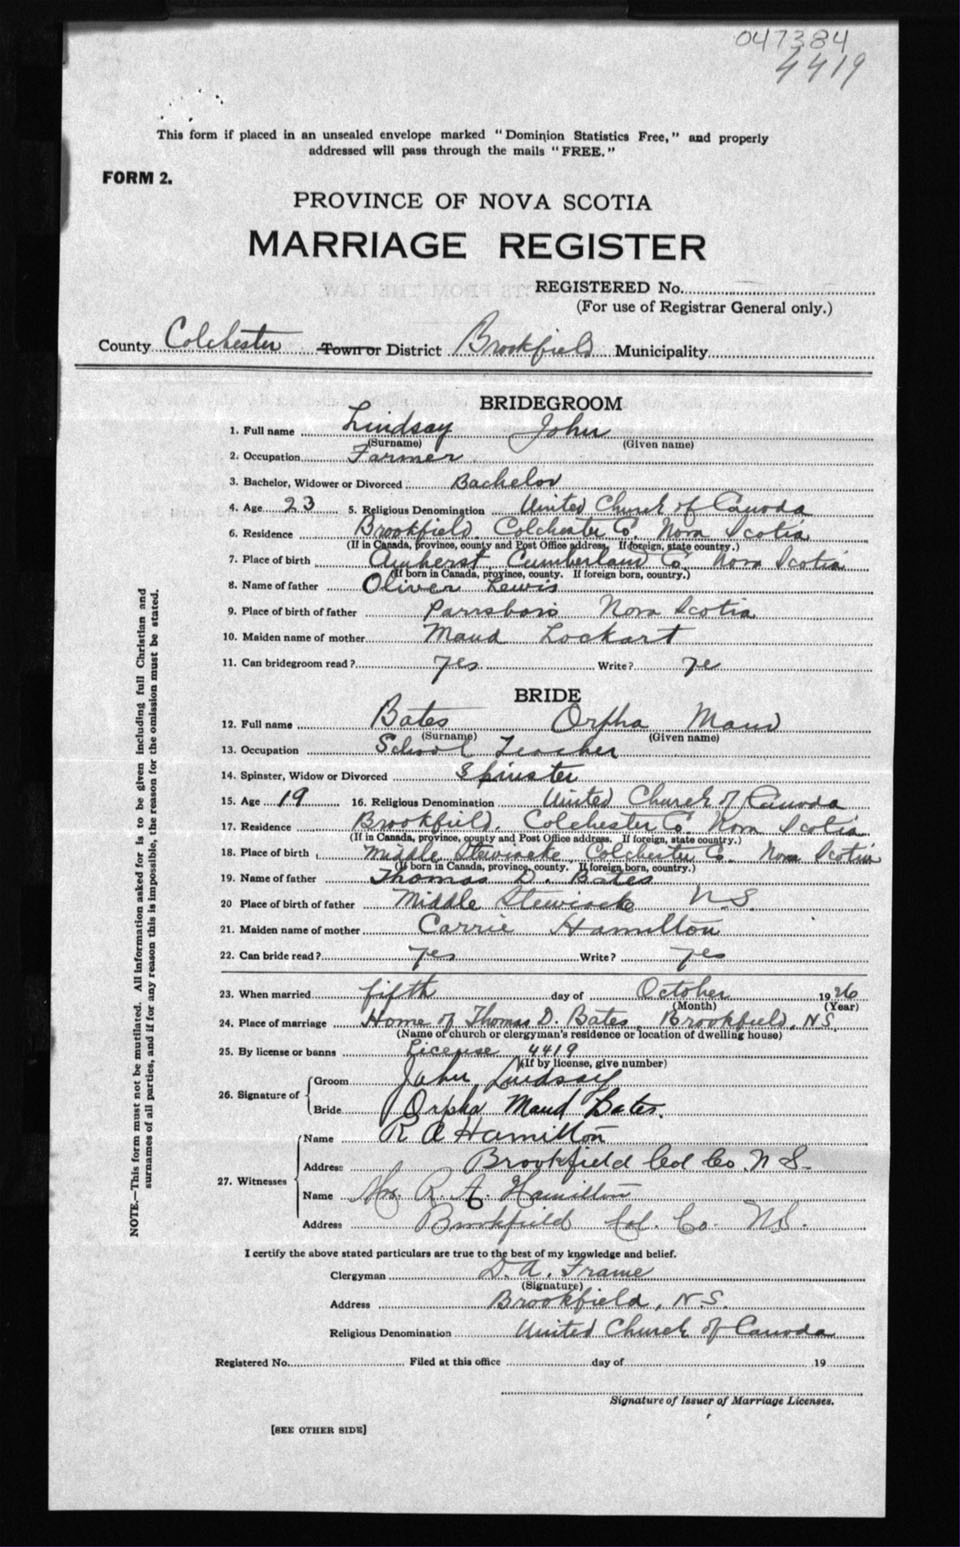 047384
4419
This form if placed in an unsealed envelope marked "Dominion Statistics Free," and properly
addressed will pass through the mails "FREE."
FORM 2.
PROVINCE OF NOVA SCOTIA
MARRIAGE REGISTER
REGISTERED No.
(For use of Registrar General only.)
County Colchester Town or District Brookfield Municipality
BRIDEGROOM
1. Full name Lindsay John
(Surname) (Given name)
2. Occupation Farmer
3. Bachelor, Widower or Divorced Bachelor
4. Age 23 5. Religious Denomination United Church of Canada
6. Residence Brookfield, Colchester Co. Nova Scotia
(If in Canada, province, county and Post Office address. If foreign, state country.)
7. Place of birth Amherst Cumberland Co. Nova Scotia
(If born in Canada, province, county. If foreign born, country.)
8. Name of father Oliver Lewis
9. Place of birth of father Parrsboro Nova Scotia
10. Maiden name of mother Maud Lockart
11. Can bridegroom read? yes Write? ye
BRIDE
12. Full name Bates Orpha Maud
(Surname) (Given name)
13. Occupation School Teacher
14. Spinster, Widow or Divorced Spinster
15. Age 19 16. Religious Denomination United Church of Canada
17. Residence Brookfield, Colchester Co. Nova Scotia
(If in Canada, province, county and Post Office address. If foreign, state country.)
18. Place of birth Middle Stewiacke Colchester Co. Nova Scotia
(If born in Canada, province, county. If foreign born, country.)
19. Name of father Thomas D. Bates
20 Place of birth of father Middle Stewiacke N.S.
21. Maiden name of mother Carrie Hamilton
22. Can bride read? yes Write? yes
23. When married fifth day of October 1926
(Month) (Year)
24. Place of marriage Home of Thomas D. Bates, Brookfield, N.S.
(Name of church or clergyman's residence or location of dwelling house)
25. By license or banns License 4419
(If by license, give number)
26. Signature of Groom John Lindsay
Bride Orpha Maud Bates.
27. Witnesses Name R A Hamilton
Address Brookfield Col Co. N S.
Name Mrs. R. A. Hamilton
Address Brookfield Col. Co. N.S.
I certify the above stated particulars are true to the best of my knowledge and belief.
Clergyman D. A. Frame
(Signature)
Address Brookfield, N.S.
Religious Denomination United Church of Canada
Registered No. Filed at this office day of 19
Signature of Issuer of Marriage Licenses.
[SEE OTHER SIDE]
NOTE.—This form must not be mutilated. All information asked for is to be given including full Christian and
surnames of all parties, and if for any reason this is impossible, the reason for the omission must be stated.